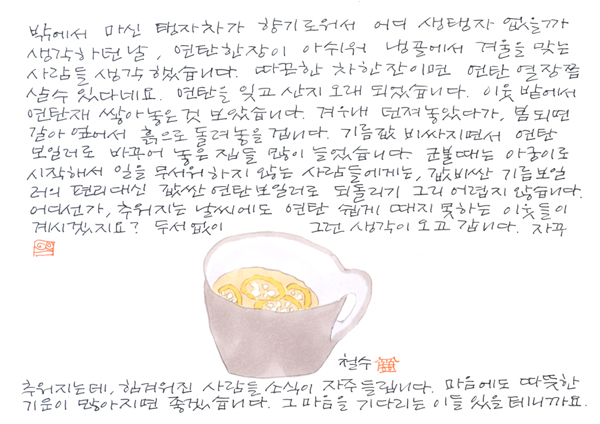 밖에서 마신 탱자차가 향기로워서 어디 생탱자 없을까
생각하던 날, 연탄 한장이 아쉬워 냉골에서 겨울을 맞는
사람들 생각 했습니다. 따끈한 차 한잔이면 연탄 열장쯤
살 수 있다네요. 연탄을 잊고 산지 오래 되었습니다. 이웃 밭에서
연탄재 쌓아놓은것 보았습니다. 겨우내 던져놓았다가, 봄되면
갈아 엎어서 흙으로 돌려놓을겁니다. 기름값 비싸지면서 연탄
보일러로 바꾸어 놓은 집들 많이 늘었습니다. 군불때는 아궁이로
시작해서 일을 무서워하지 않는 사람들에게는, 값비싼 기름보일
러의 편리대신 값싼 연탄보일러로 되돌리기 그리 어렵지 않습니다.
어디선가, 추워지는 날씨에도 연탄 쉽게 때지 못하는 이웃들이
계시겠지요? 두서없이 그런 생각이 오고 갑니다. 자꾸
철수
추워지는데, 힘겨워진 사람들 소식이 자주 들립니다. 마음에도 따뜻한
기운이 많아지면 좋겠습니다. 그 마음을 기다리는 이들 있을테니까요.